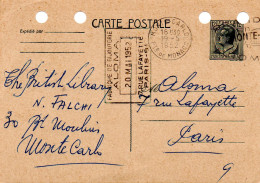 CARTE POSTALE
Expédié par
ALOMA
20 MAI 1952
RUE LAFAYETTE
PARIS
The British Library
N. FALCHI
30 Bd Moulins
Monte Carlo
Aloma
rue Lafayette
Paris
9